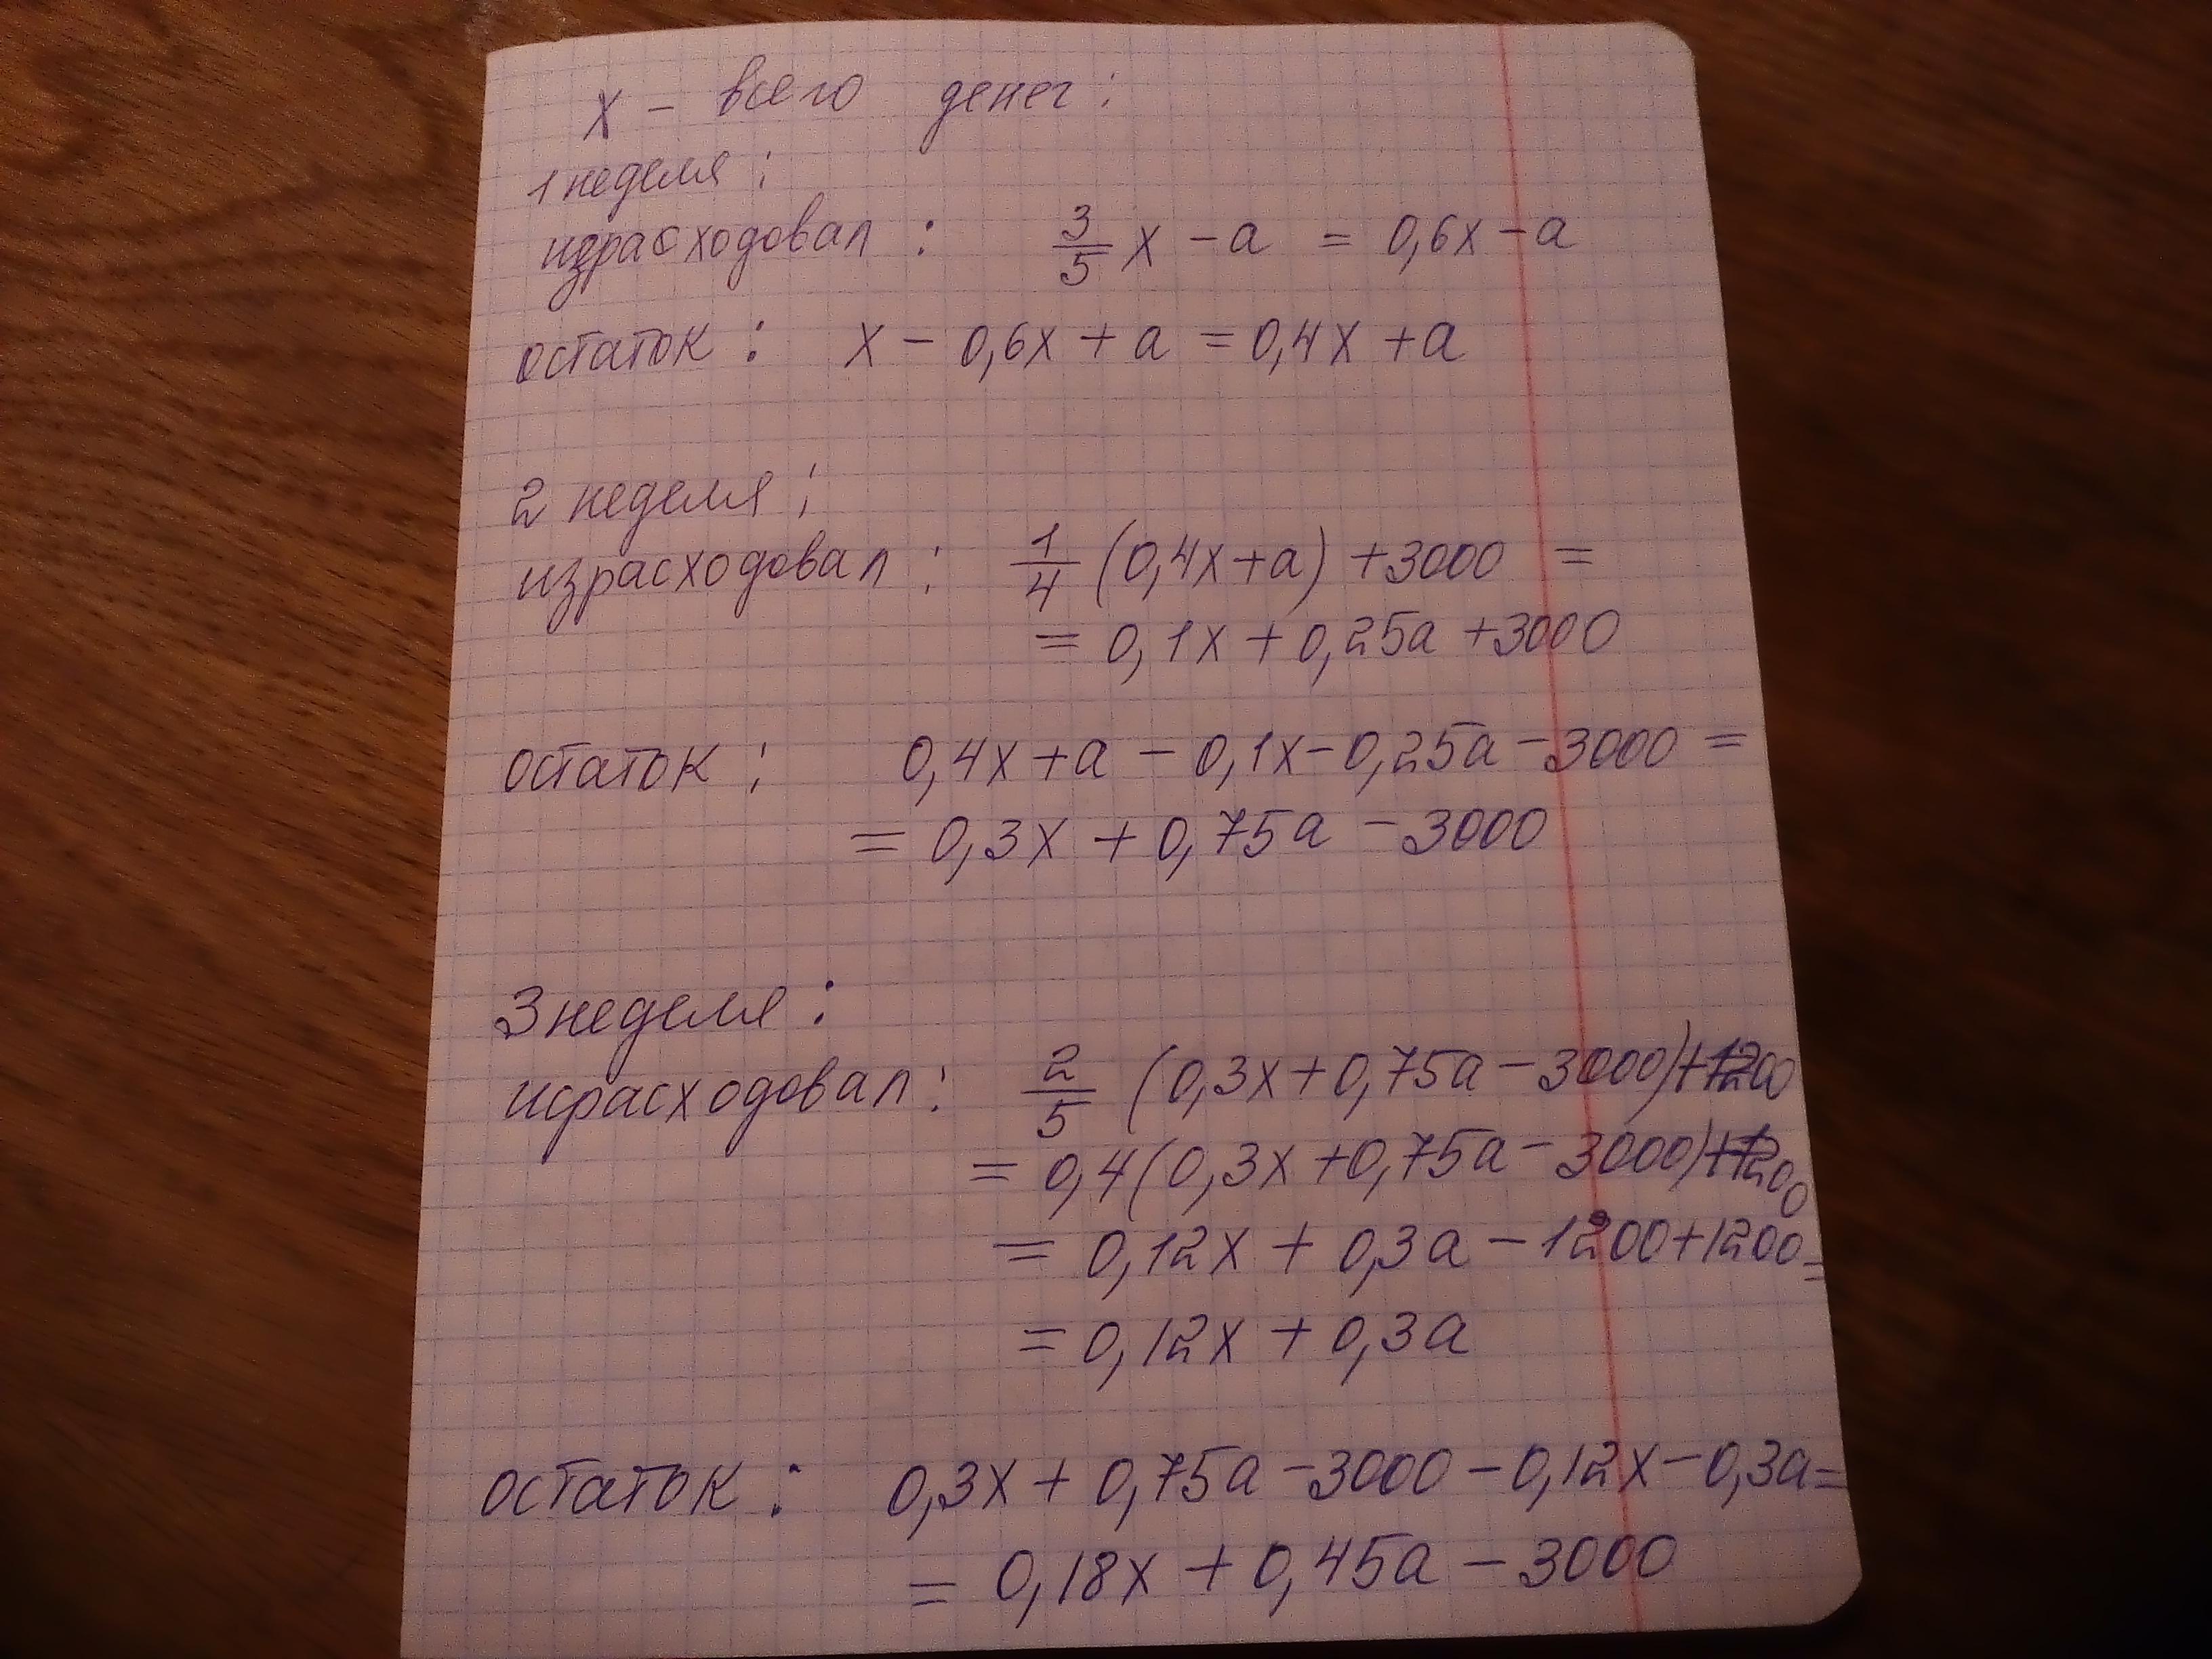 x - всего денег:
1 неделя:
израсходовал: 3/5 x - a = 0,6x - a
остаток: x - 0,6x + a = 0,4x + a
2 неделя:
израсходовал: 1/4 (0,4x + a) + 3000 =
= 0,1x + 0,25a + 3000
остаток: 0,4x + a - 0,1x - 0,25a - 3000 =
= 0,3x + 0,75a - 3000
3 неделя:
исрасходовал: 2/5 (0,3x + 0,75a - 3000) + 1200
= 0,4 (0,3x + 0,75a - 3000) + 1200
= 0,12x + 0,3a - 1200 + 1200 =
= 0,12x + 0,3a
остаток: 0,3x + 0,75a - 3000 - 0,12x - 0,3a =
= 0,18x + 0,45a - 3000